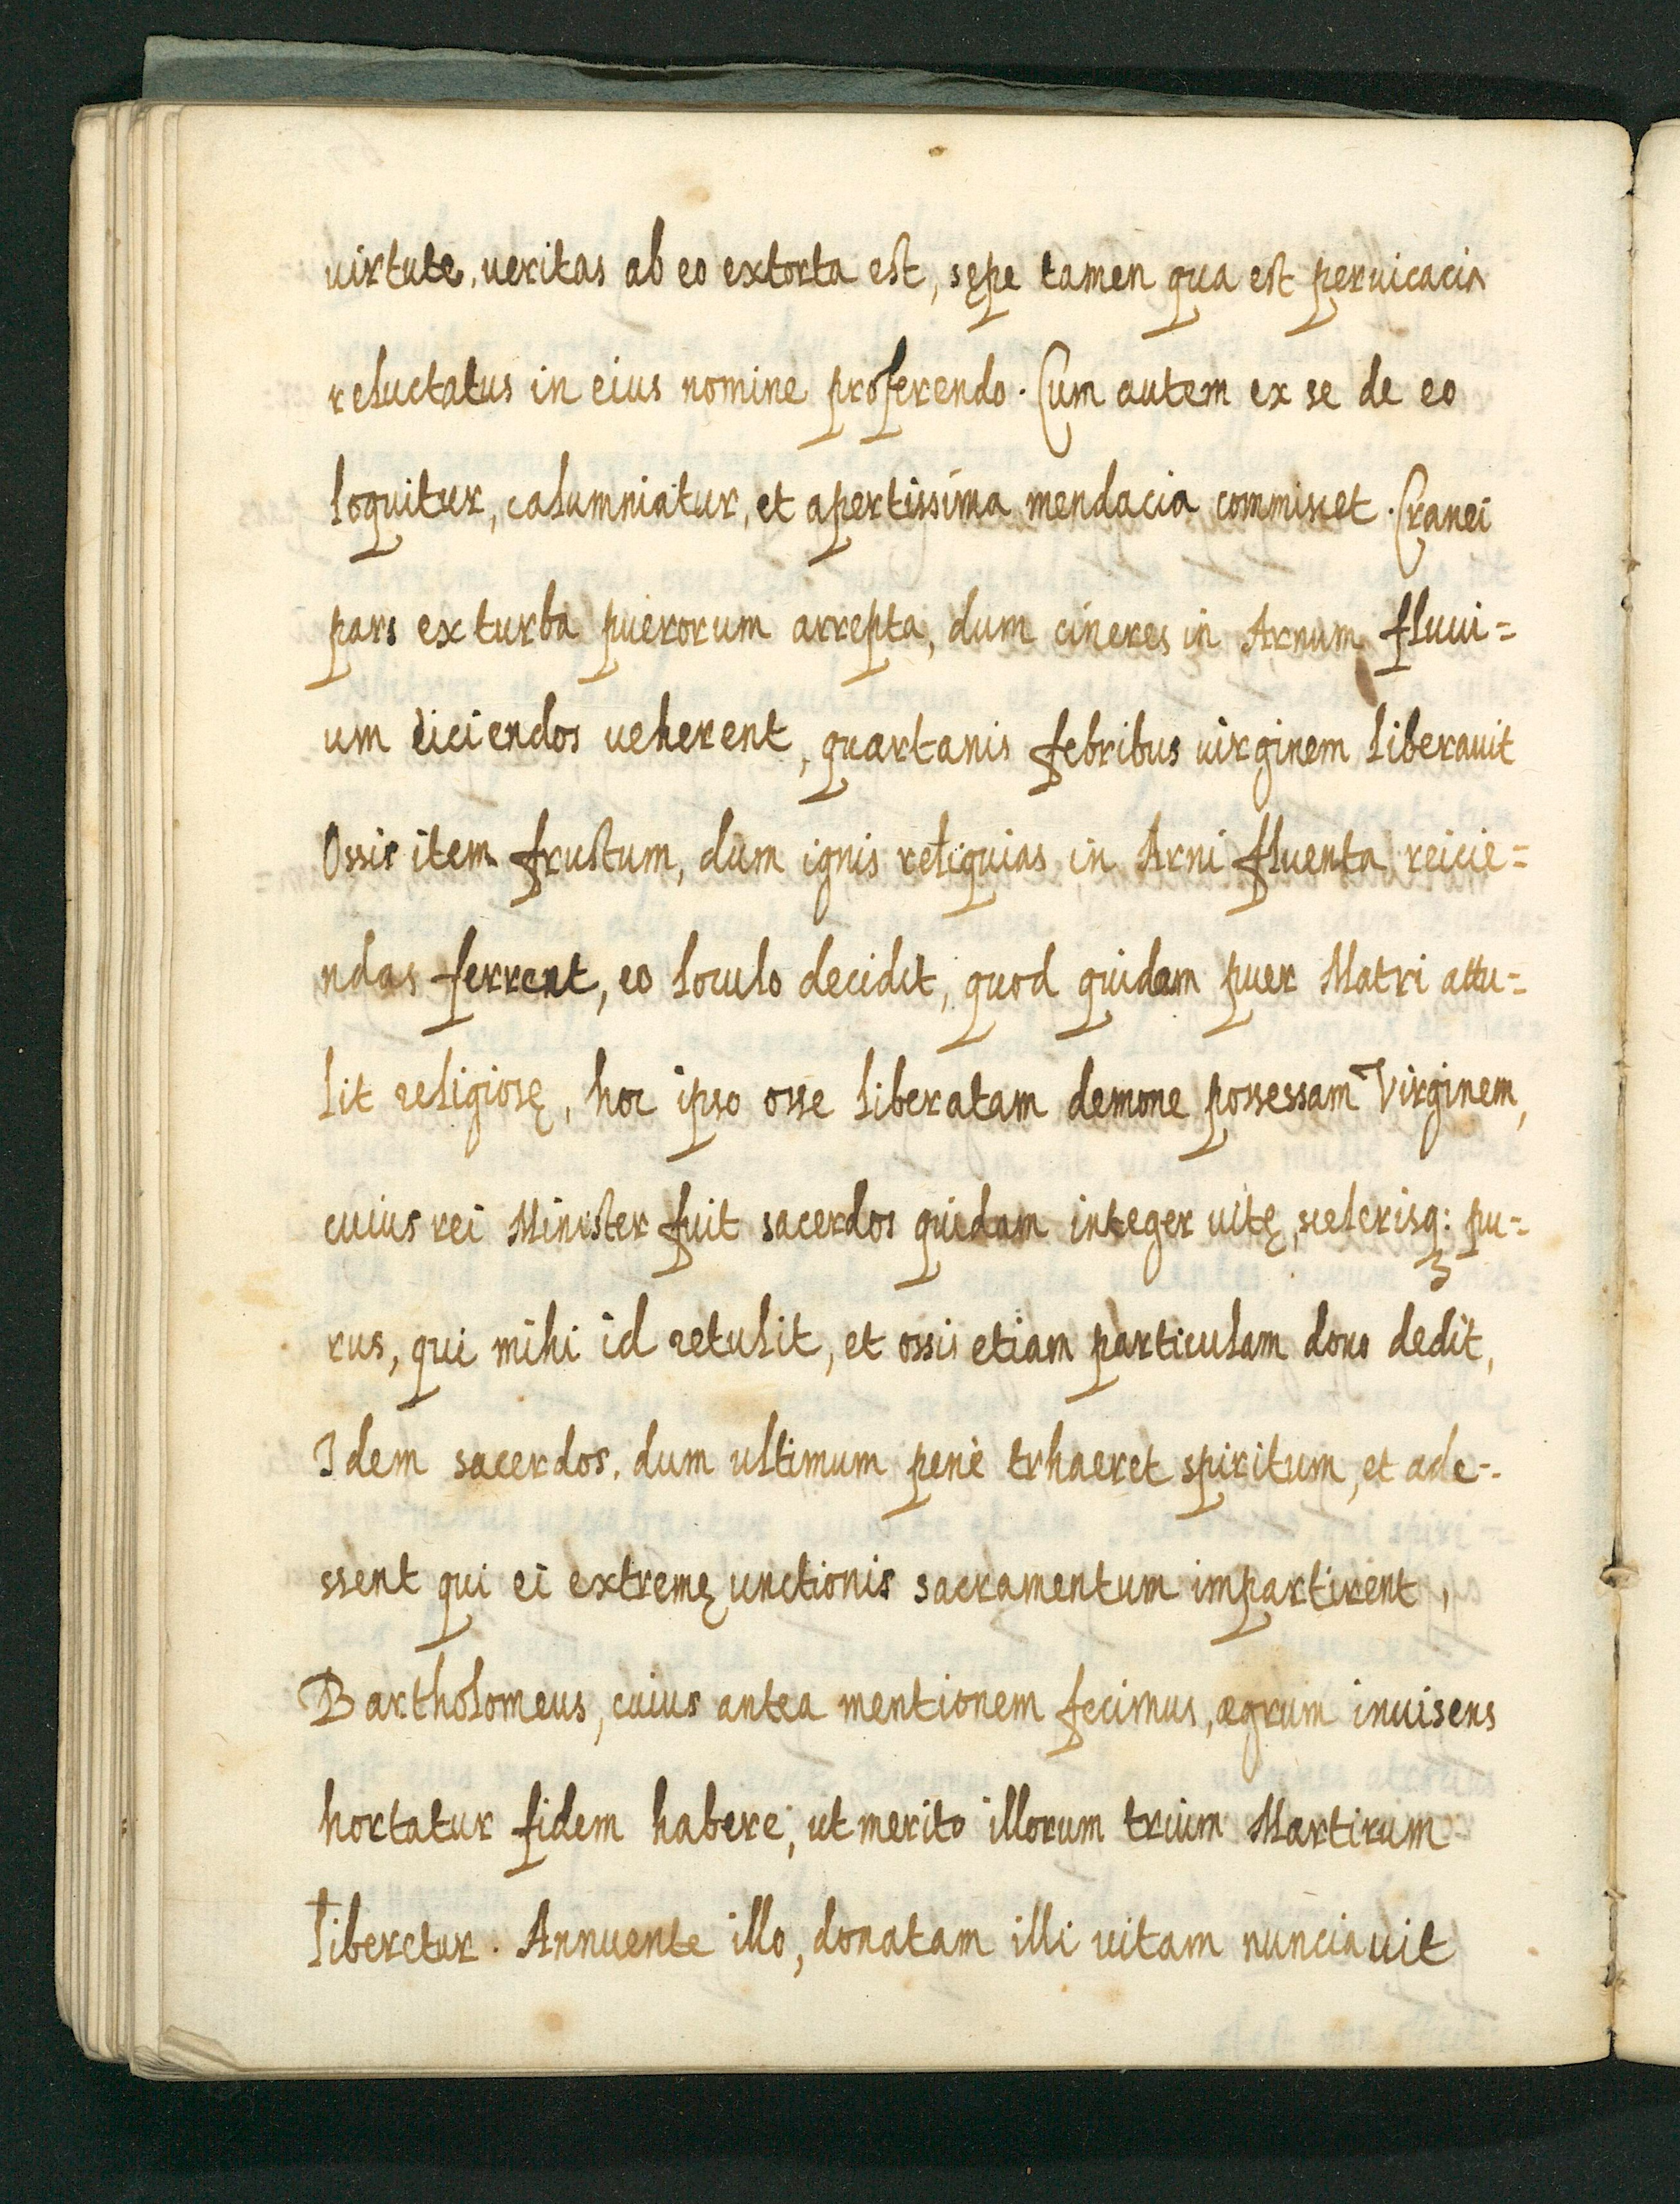 uirtute, ueritas ab eo extorta est, sępe tamen qua est peruicacia
reluctatus in eius nomine proferendo. Cum autem ex se de eo
loquitur, calumniatur, et apertissima mendacia commiscet. Cranei
pars ex turba puerorum arrepta, dum cineres in Arnum fluui=
um eiciendos ueherent, quartanis febribus uirginem liberauit
Ossis item frustum, dum ignis reliquias in Arni fluenta reicie=
ndas ferrent, eo loculo decidit, quod quidam puer Matri attu=
lit religiosę, hoc ipso osse liberatam demone possessam Virginem,
cuius rei Minister fuit sacerdos quidam integer uitę, scelerisq: pu=
rus, qui mihi id retulit, et ossis etiam particulam dono dedit,
Idem sacerdos, dum ultimum penè trhaeret spiritum, et ade-
ssent qui ei extremę unctionis sacramentum impartirent,
Bartholomeus, cuius antea mentionem fecimus, ægrum inuisens
hortatur fidem habere, ut merito illorum trium Martirum
liberetur. Annuente illo, donatam illi uitam nunciauit